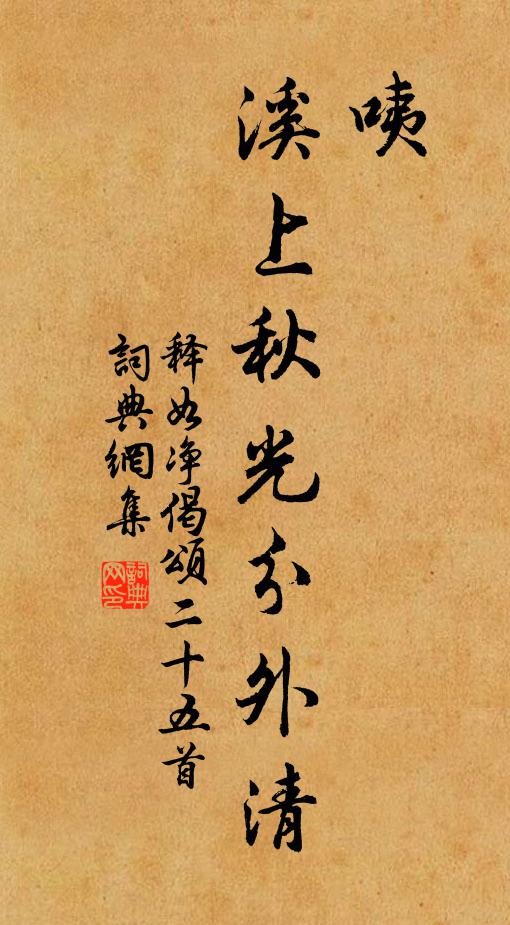 咦
溪上秋光分外清
释如净偈頌二十五首
詞典網集
詞典网印